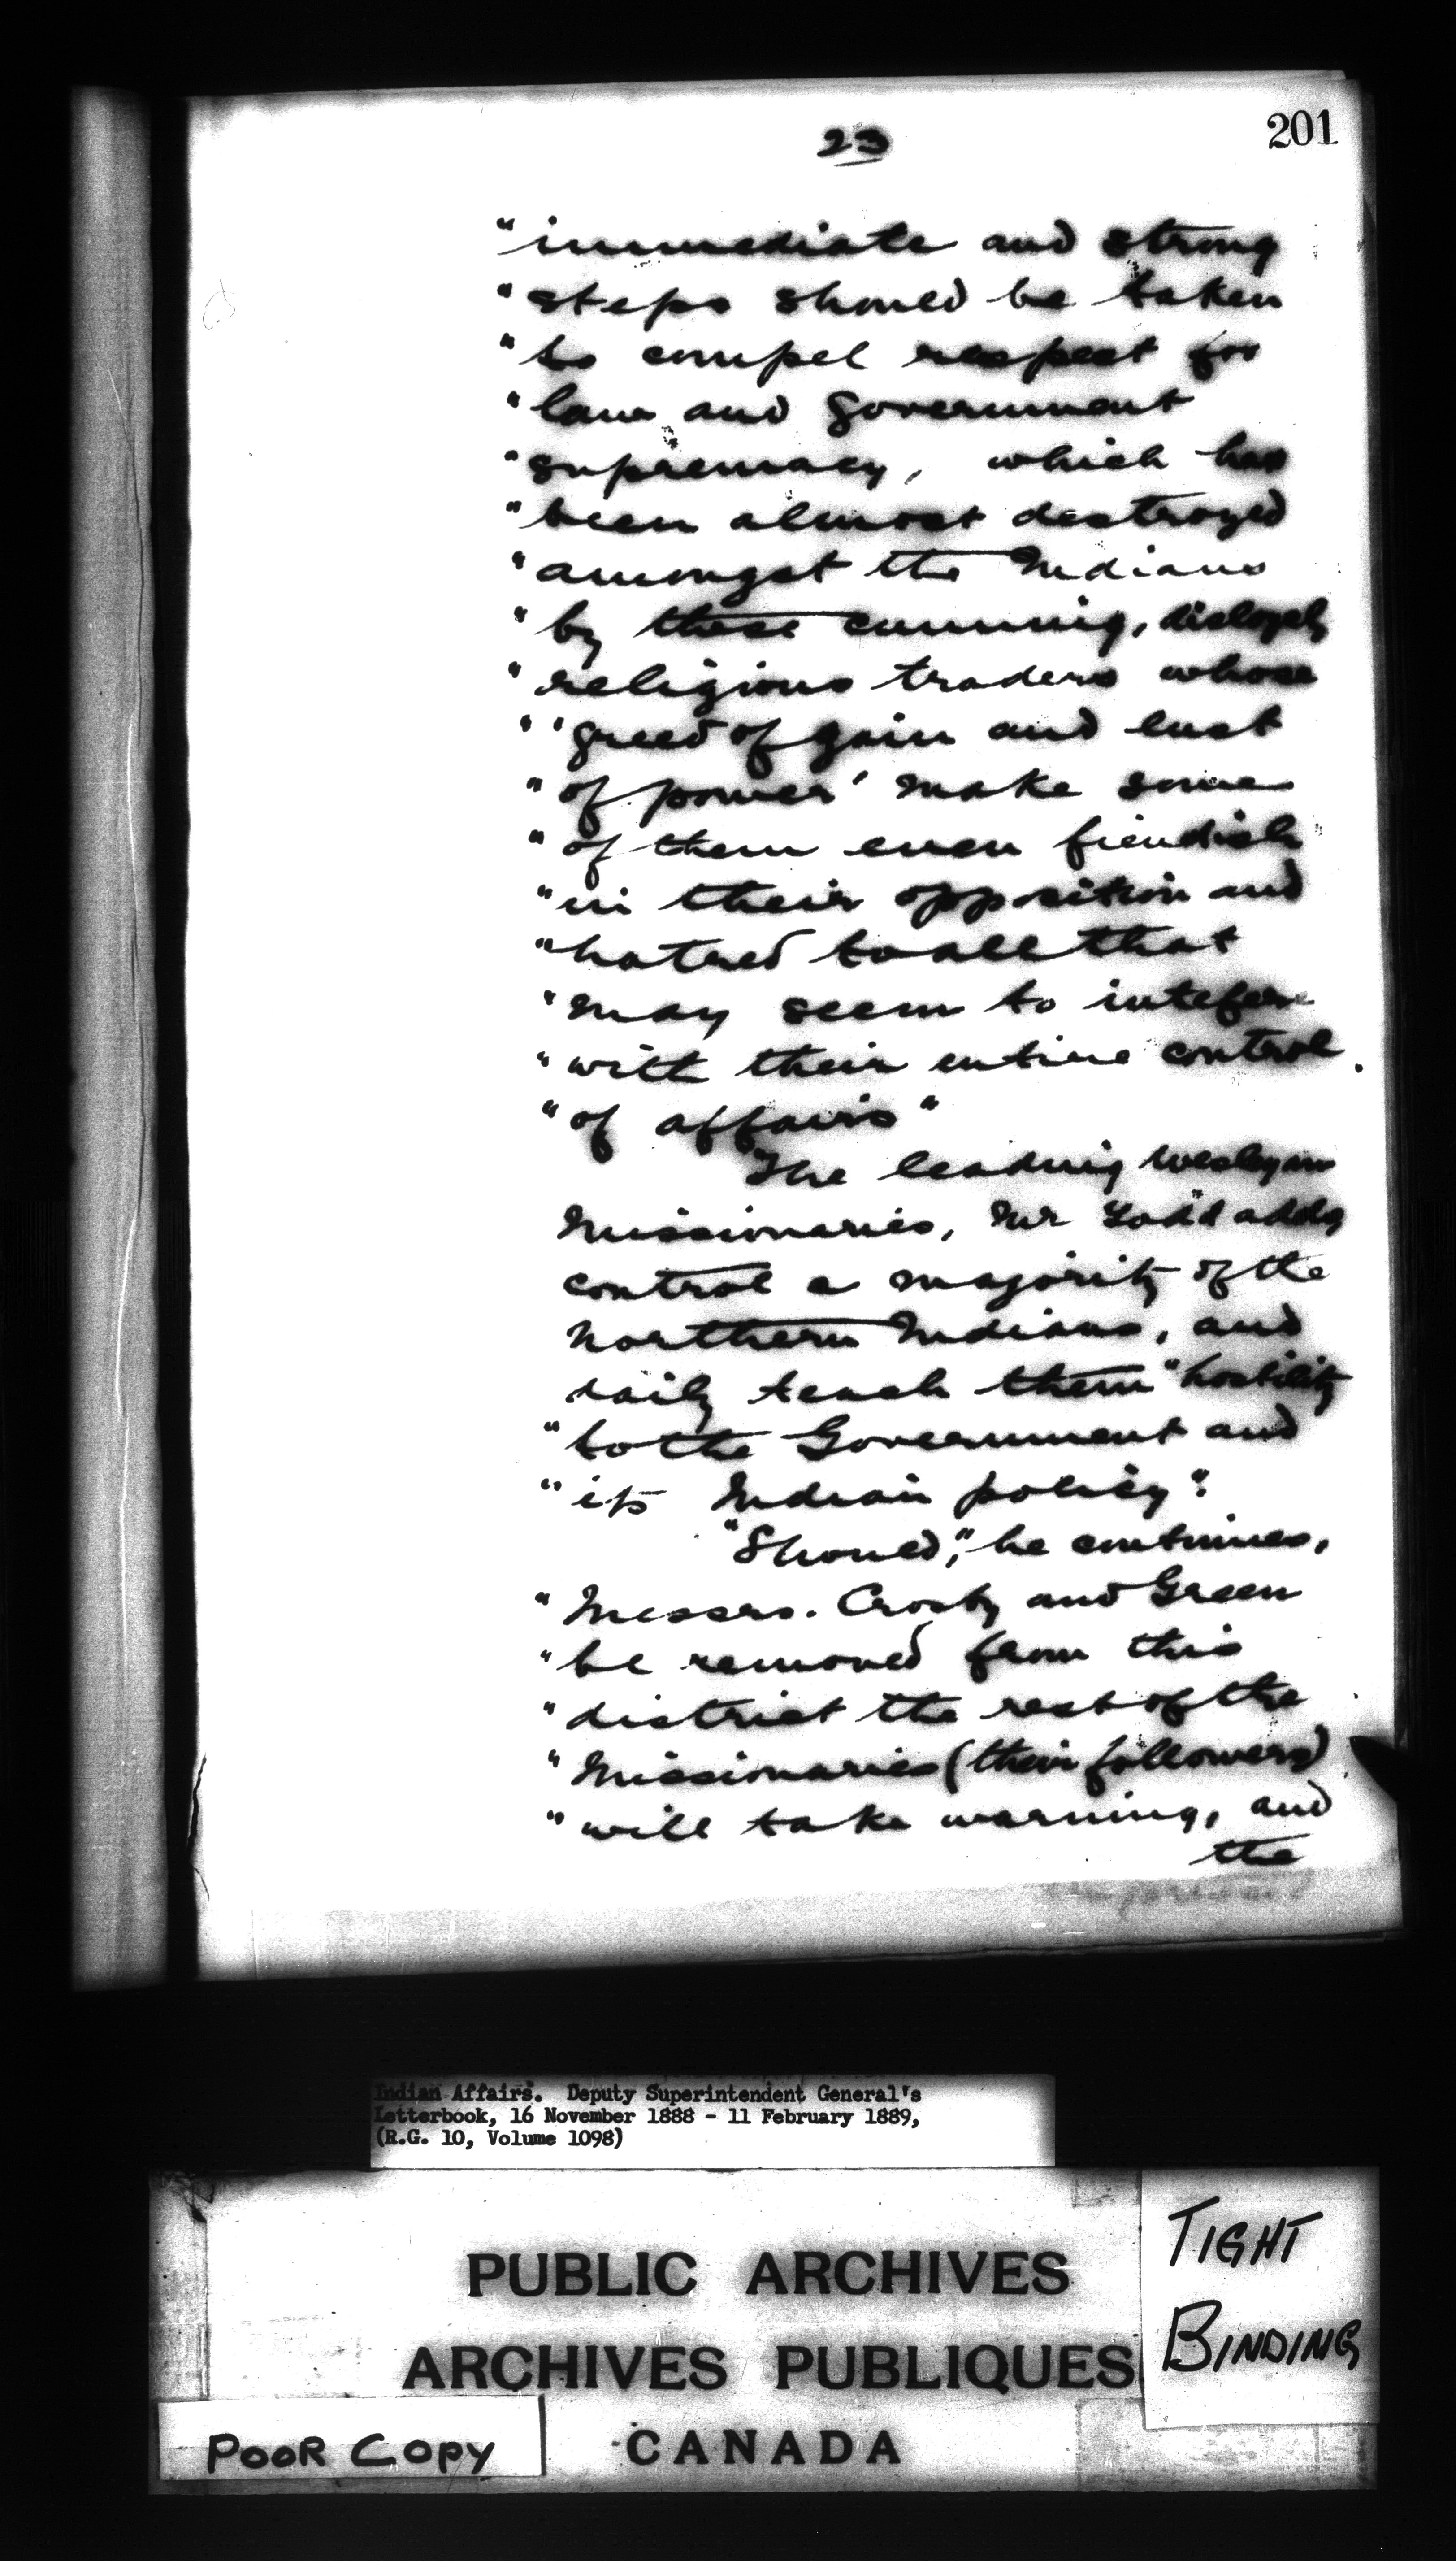 201
23
"immediate and strong
"steps should be taken
"to compel respect for
"law and government
"supremacy, which has
"been almost destroyed
"amongst the Indians
"by these cunning, disloyal,
"religious traders whose
"'greed of gain and lust
"of power' make some
"of them even fiendish
"in their opposition and
"hatred to all that
"may seem to intefere
"with their entire control
"of affairs"
The leading Wesleyan
Missionaries, Mr Todd adds,
control a majority of the
Northern Indians, and
daily teach them "hostility
"to the Government and
"its Indian policy".
"Should," he continues,
"Messrs. Crosby and Green
"be removed from this
"district the rest of the
"Missionaries (their followers)
"will take warning, and
the
Indian Affairs. Deputy Superintendent General's
Letterbook, 16 November 1888 - 11 February 1889,
(R.G. 10, Volume 1098)
PUBLIC ARCHIVES
ARCHIVES PUBLIQUES
CANADA
TIGHT
BINDING
POOR COPY